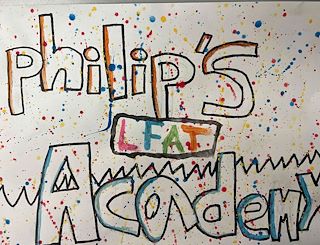 philip's
LFAT
Academy